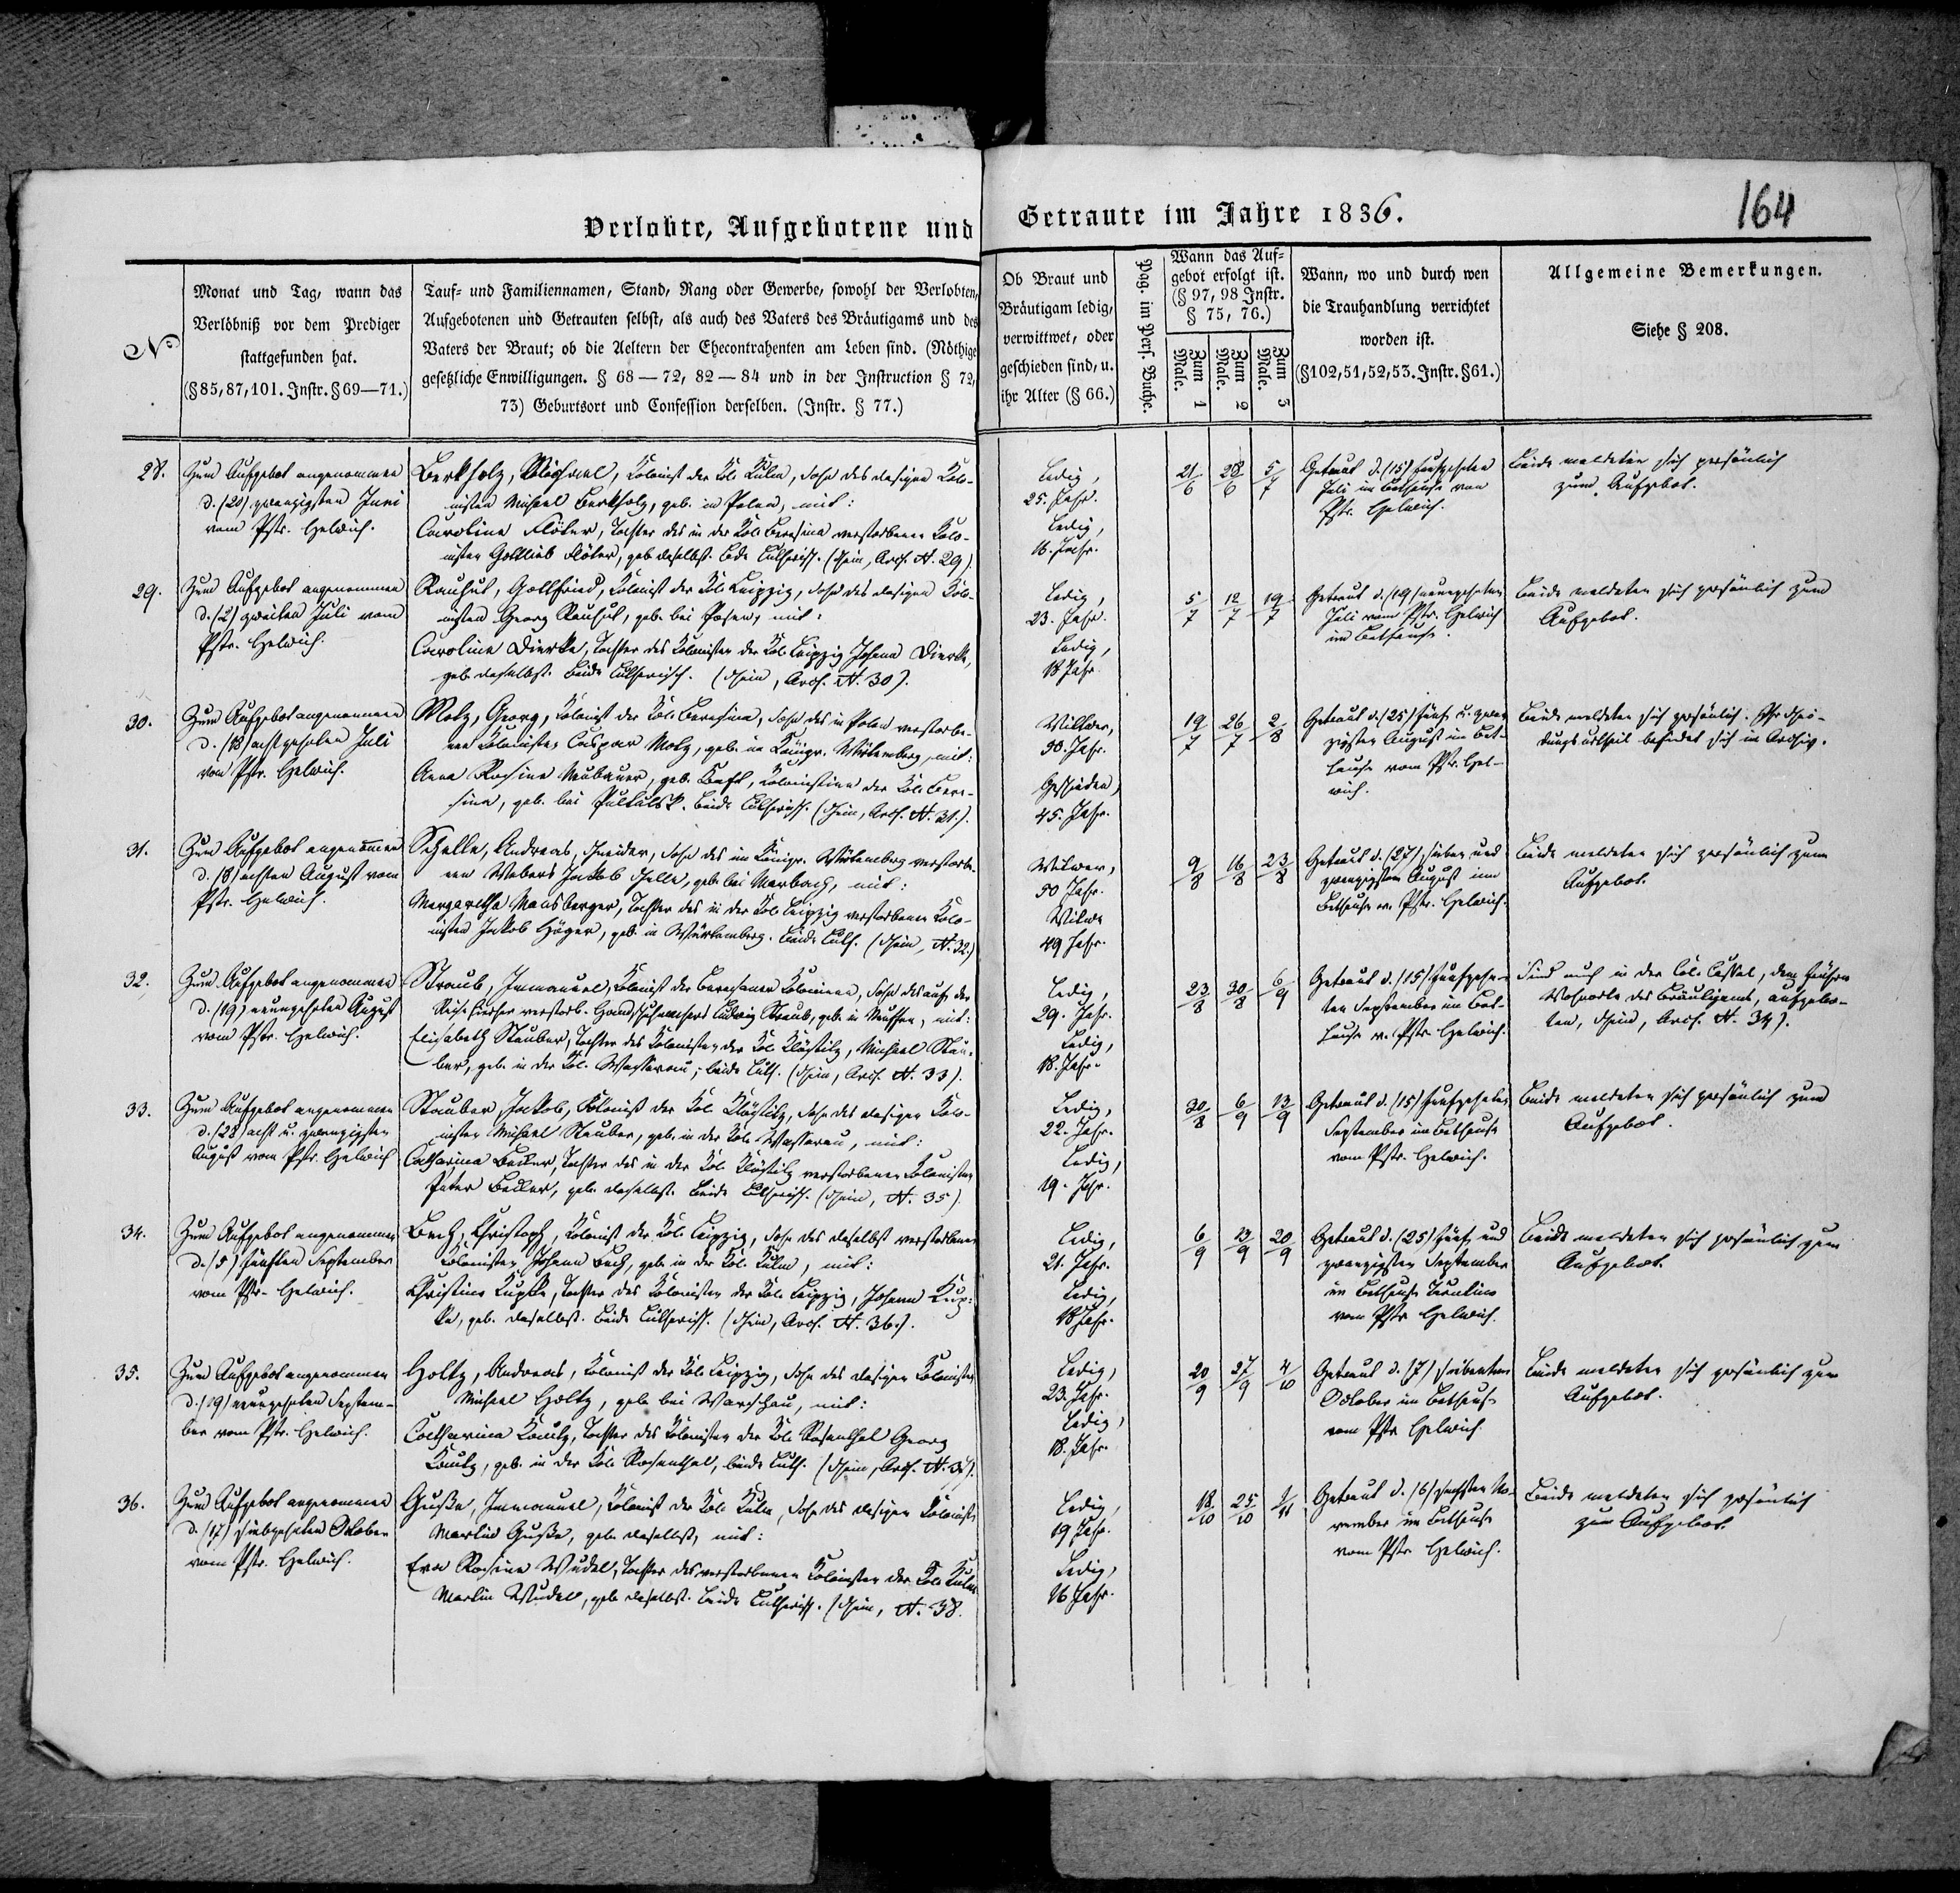 164
Verlobte, Aufgebotene und Getraute im Jahre 1836.
№
Monat und Tag, wann das
Verlöbniß vor dem Prediger
stattgefunden hat.
(§85,87,101. Instr. §69—71.)
Tauf- und Familiennamen, Stand, Rang oder Gewerbe, sowohl der Verlobten,
Aufgebotenen und Getrauten selbst, als auch des Vaters des Bräutigams und des
Vaters der Braut; ob die Aeltern der Ehecontrahenten am Leben sind. (Nöthige
gesetzliche Enwilligungen. § 68—72, 82—84 und in der Instruction § 72,
73) Geburtsort und Confession derselben. (Instr. § 77.)
Ob Braut und
Bräutigam ledig,
verwittwet, oder
geschieden sind, u.
ihr Alter (§ 66.)
Pag. im Pers. Buche.
Wann das Auf-
gebot erfolgt ist.
(§ 97, 98 Instr.
§ 75, 76.)
Zum 1 Male.
Zum 2 Male.
Zum 3 Male.
Wann, wo und durch wen
die Trauhandlung verrichtet
worden ist.
(§102,51,52,53. Instr. §61.)
Allgemeine Bemerkungen.
Siehe § 208.
28.
Zum Aufgebot angenommen
d. (20) zwanzigsten Juni
vom Pstr. Helwich.
Berkholz, Michael, Kolonist der Kol. Kulm, Sohn des dasigen Kolo-
nisten Michael Berkholz, geb. in Polen, mit:
Caroline Flöter, Tochter des in der Kol. Beresina verstorbenen Kolo-
nisten Gottlieb Flöter, geb. daselbst. Beide Lutherisch. (Schein, Arch. №. 29).
Ledig,
25. Jahr.
Ledig,
16. Jahr.
21/6 28/6 5/7
Getraut d. (15) fünfzehnten
Juli im Bethause von
Pstr. Helwich.
Beide meldeten sich persönlich
zum Aufgebot.
29.
Zum Aufgebot angenommen
d. (2) zweiten Juli vom
Pstr. Helwich.
Rauhut, Gottfried, Kolonist der Kol. Leipzig, Sohn des dasigen Kolo-
nisten Georg Rauhut, geb. bei Posen, mit:
Caroline Dierke, Tochter des Kolonisten der Kol. Leipzig Johann Dierke,
geb. daselbst. Beide Lutherisch. (Schein, Arch. №. 30).
Ledig,
23. Jahr.
Ledig,
18 Jahr.
5/7 12/7 19/7
Getraut d. (19) neunzehnten
Juli vom Pstr. Helwich
im Bethause.
Beide meldeten sich persönlich zum
Aufgebot.
30.
Zum Aufgebot angenommen
d. (18) achtzehnten Juli
von Pstr. Helwich.
Motz, Georg, Kolonist der Kol. Beresina, Sohn des in Polen verstorbe-
nen Kolonisten Caspar Motz, geb. im Königr. Würtemberg, mit:
Anna Rosine Neubauer, geb. Kraft, Kolonistinn der Kol. Bere-
sina, geb. bei Pultulsk. Beide Lutherisch. (Schein, Arch. №. 31.).
Wittwer,
50. Jahr.
Geschieden,
45. Jahr.
19/7 26/7 2/8
Getraut d. (25) fünf u. zwan-
zigsten August im Bet-
hause vom Pstr. Hel-
wich.
Beide meldeten sich persönlich. Ihr Schei-
dungsurtheil befindet sich im Archiv.
31.
Zum Aufgebot angenommen
d. (8) achten August vom
Pstr. Helwich.
Schelle, Andreas, Schneider, Sohn des im Königr. Würtemberg verstorbe-
nen Webers Jakob Schelle, geb. bei Marbach, mit:
Margaretha Mansberger, Tochter des in der Kol. Leipzig verstorbenen Kolo-
nisten Jakob Häger, geb. in Würtemberg. Beide Luth. (Schein, №. 32.)
Witwer,
50 Jahr.
Witwe
49 Jahr.
9/8 16/8 23/8
Getraut d. (27) sieben und
zwanzigsten August im
Bethause v. Pstr. Helwich.
Beide meldeten sich persönlich zum
Aufgebot.
32.
Zum Aufgebot angenommen
d. (19) neunzehnten August
vom Pstr. Helwich.
Straub, Immanuel, Kolonist der Beresaner Kolonieen, Sohn des auf der
Reise hierher verstorb. Handschuhmachers Ludwig Straub, geb. in Neuffen, mit:
Elisabeth Stauber, Tochter des Kolonisten der Kol. Klöstitz, Michael Stau-
ber, geb. in der Kol. Wasserau; beide Luth. (Schein, Arch. №. 33).
Ledig,
29. Jahr.
Ledig,
18. Jahr.
23/8 30/8 6/9
Getraut d. (15) fünfzehn-
ten September im Bet-
hause v. Pstr. Helwich.
Sind auch in der Kol. Cassel, dem frühern
Wohnorte des Bräutigams, aufgebo-
ten, (Schein, Arch. №. 34).
33.
Zum Aufgebot angenommen
d. (28) acht u. zwanzigsten
August vom Pstr. Helwich
Stauber, Jakob, Kolonist der Kol. Klöstitz, Sohn des dasigen Kolo-
nisten Michael Stauber, geb. in der Kol. Wasserau, mit:
Catharina Becker, Tochter des in der Kol. Klöstitz verstorbenen Kolonisten
Peter Becker, geb. daselbst. Beide Lutherisch. (Schein, №. 35).
Ledig,
22. Jahr.
Ledig,
19. Jahr.
30/8 6/9 13/9
Getraut d. (15) fünfzehnten
September im Bethause
vom Pstr. Helwich.
Beide meldeten sich persönlich zum
Aufgebot.
34.
Zum Aufgebot angenommen
d. (5) fünften September
vom Pstr. Helwich.
Bech, Christoph, Kolonist der Kol. Leipzig, Sohn des daselbst verstorbenen
Kolonisten Johann Bech, geb. in der Kol. Kulm, mit:
Christine Kupske, Tochter des Kolonisten der Kol. Leipzig, Johann Kup-
ke, geb. daselbst. Beide Lutherisch. (Schein, Arch. №. 36.).
Ledig,
21. Jahr.
Ledig,
18 Jahr.
6/9 13/9 20/9
Getraut d. (25) fünf und
zwanzigsten September
im Bethause
vom Pstr. Helwich.
Beide meldeten sich persönlich zum
Aufgebot.
35.
Zum Aufgebot angenommen
d. (19) neunzehnten Septem-
ber vom Pstr. Helwich.
Holtz, Andreas, Kolonist der Kol. Leipzig, Sohn des dasigen Kolonisten
Michael Holtz, geb. bei Warschau, mit:
Catharina Koutz, Tochter des Kolonisten der Kol. Rosenthal Georg
Koutz, geb. in der Kol. Rosenthal, beide Luth. (Schein, Arch. №. 37).
Ledig,
23. Jahr.
Ledig,
18. Jahr.
20/9 27/9 4/10
Getraut d. (7) siebenten
Oktober im Bethause
vom Pstr. Helwich.
Beide meldeten sich persönlich zum
Aufgebot.
36.
Zum Aufgebot angenommen
d. (17) siebzehnten Oktober
vom Pstr. Helwich.
Guße, Immanuel, Kolonist der Kol. Kulm, Sohn des dasigen Kolonisten
Martin Guße, geb. daselbst, mit:
Eva Rosine Wudel, Tochter des verstorbenen Kolonisten der Kol. Kulm
Martin Wudel, geb. daselbst. Beide Lutherisch. (Schein, №. 38.
Ledig,
19 Jahr.
Ledig,
16 Jahr.
18/10 25/10 1/11
Getraut d. (6) sechsten No-
vember im Bethause
vom Pstr. Helwich.
Beide meldeten sich persönlich
zum Aufgebot.